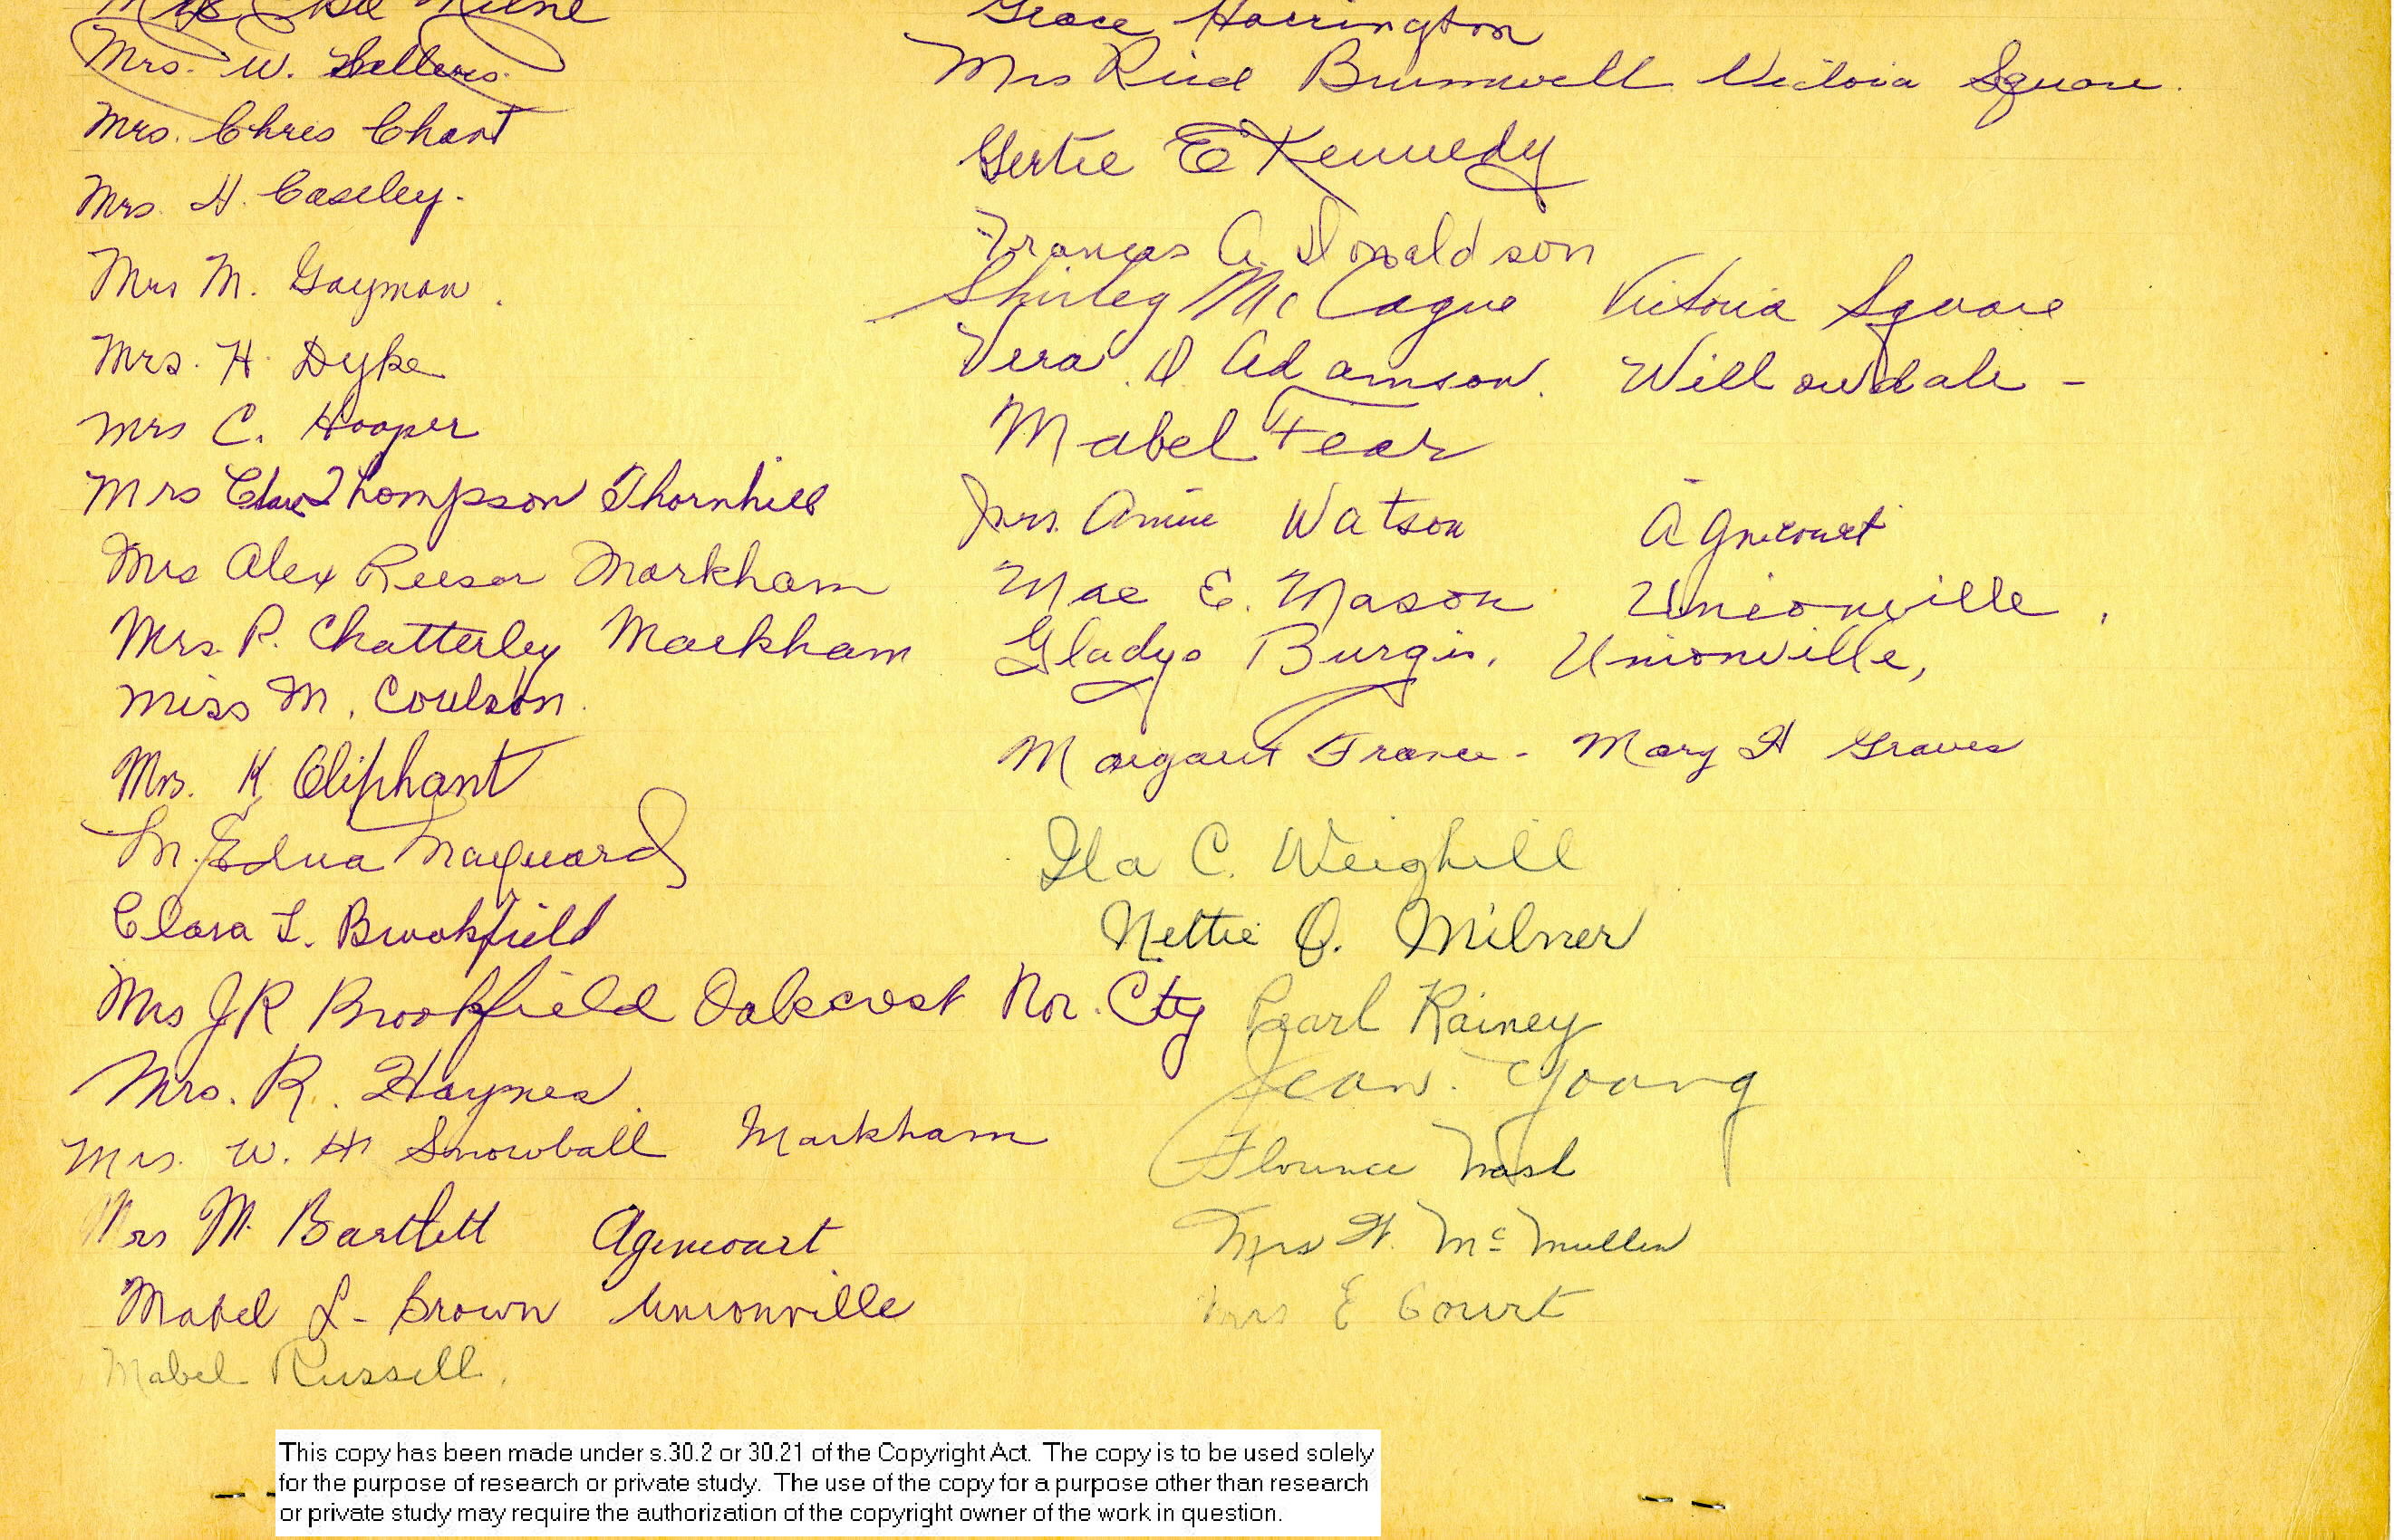 Milne
Mrs. W. Sellers.
Mrs. Chris Chant
Mrs. H. Caseley.
Mrs M. Gayman.
Mrs. H. Dyke
Mrs C. Hooper
Mrs Clare Thompson Thornhill
Mrs Alex Reesor Markham
Mrs. P. Chatterley Markham
Miss M. Coulson.
Mrs. K. Oliphant
M. Edna Maynard
Clara L. Brookfield
Mrs J R Brookfield Oakcrest Nor. City
Mrs. R. Haynes.
Mrs. W. H Snowball Markham
Mrs M. Bartlett Agincourt
Mabel L - Brown Unionville
Mabel Russell.
Grace Harrington
Mrs Reid Brumwell Victoria Square.
Gertie E Kennedy
Frances A. Donaldson
Shirley McCague Victoria Square
Vera D. Adamson. Willowdale -
Mabel Fear
Mrs. Annie Watson Agincourt
Mae E. Mason Unionville,
Gladys Burgis, Unionville,
Margaret France - Mary H Graves
Ila C. Weighill
Nettie O. Milner
Pearl Rainey
Jean. Young
Florence Nash
Mrs McMullen
Mrs E Court
This copy has been made under s.30.2 or 30.21 of the Copyright Act. The copy is to be used solely
for the purpose of research or private study. The use of the copy for a purpose other than research
or private study may require the authorization of the copyright owner of the work in question.